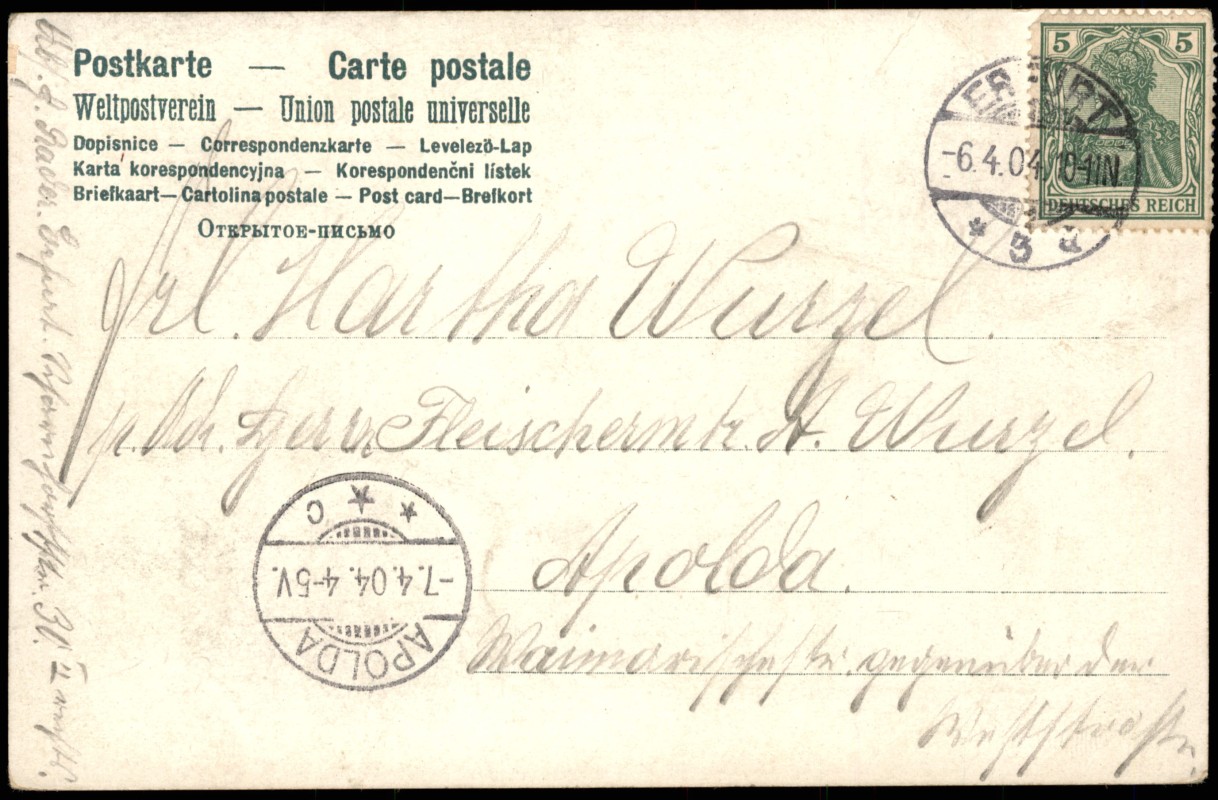 Postkarte — Carte postale
Weltpostverein — Union postale universelle
Dopisnice — Correspondenzkarte — Levelező-Lap
Karta korespondencyjna — Korespondenční lístek
Briefkaart — Cartolina postale — Post card — Brefkort
Открытое-письмо
5 5
DEUTSCHES REICH
ERFURT
-6.4.04. 10-11N
* 3 a
Frl. Martha Wurzel.
Herrn Fleischermstr. A. Wurzel.
Apolda.
Waimarischestr. gegenüber der
APOLDA
-7.4.04. 4-5V.
* * c
Erfurt.
30 II